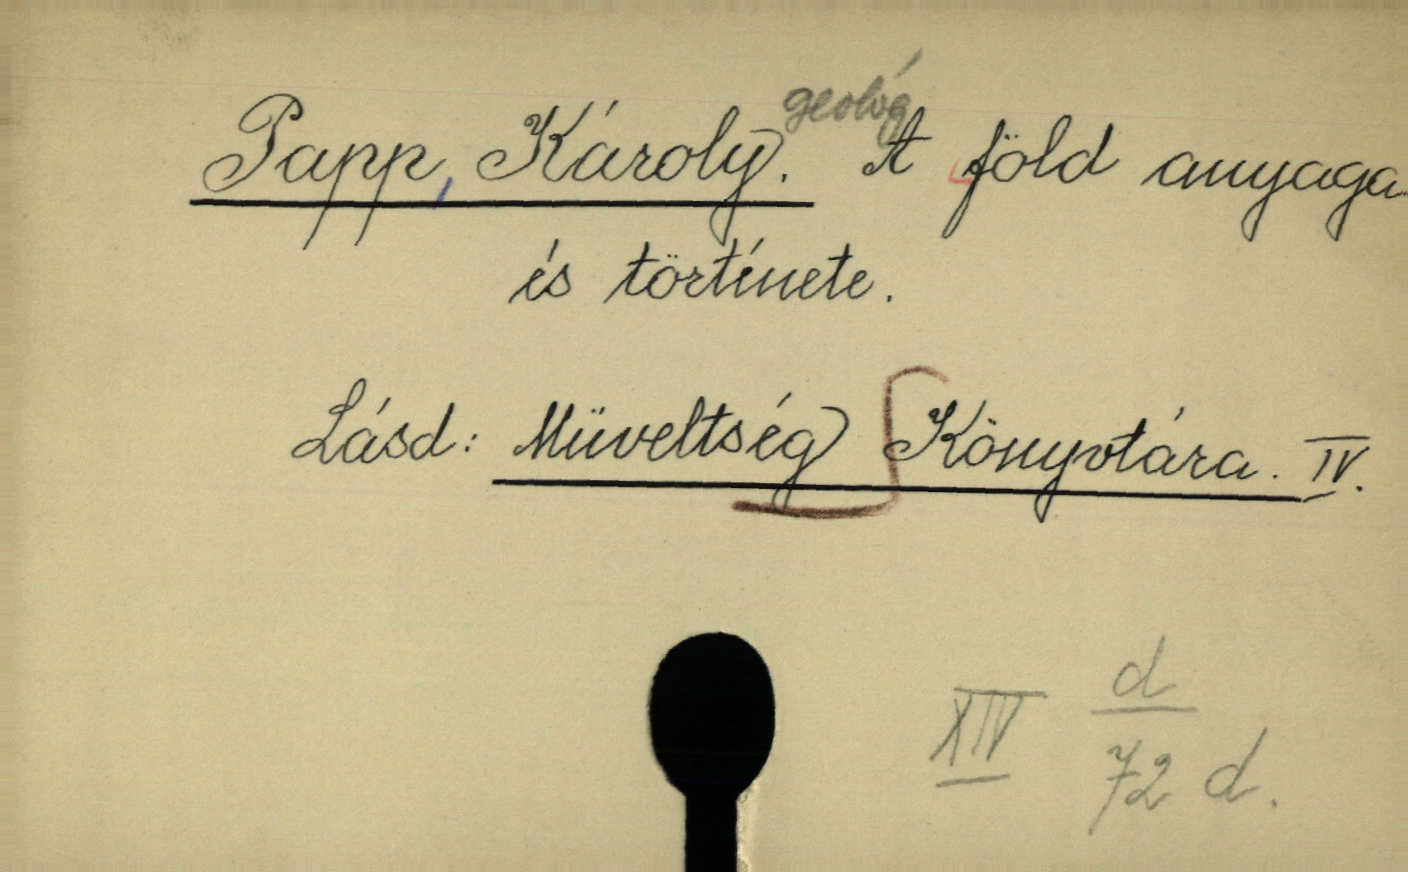 Papp, Károly. geológ A föld anyaga
és története.
Lásd: Müveltség Könyvtára. IV.
XIV d/72 d.